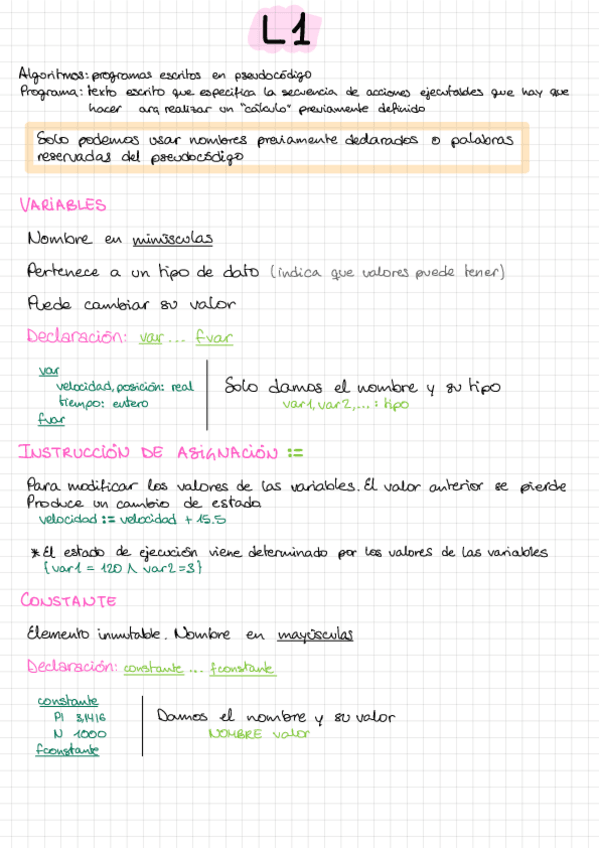 L1
Algoritmos: programas escritos en pseudocódigo
Programa: texto escrito que especifica la secuencia de acciones ejecutables que hay que
hacer ara realizar un "cálculo" previamente definido
Solo podemos usar nombres previamente declarados o palabras
reservadas del pseudocódigo
VARIABLES
Nombre en minúsculas
Pertenece a un tipo de dato (indica que valores puede tener)
Puede cambiar su valor
Declaración: var ... fvar
var
velocidad, posición: real
tiempo: entero
fvar
Solo damos el nombre y su tipo
var1, var2, ... : tipo
INSTRUCCIÓN DE ASIGNACIÓN :=
Para modificar los valores de las variables. El valor anterior se pierde
Produce un cambio de estado
velocidad := velocidad + 15.5
* El estado de ejecución viene determinado por los valores de las variables
{var1 = 120 ∧ var2 = 3}
CONSTANTE
Elemento inmutable. Nombre en mayúsculas
Declaración: constante ... fconstante
constante
PI 3,1416
N 1000
fconstante
Damos el nombre y su valor
NOMBRE valor